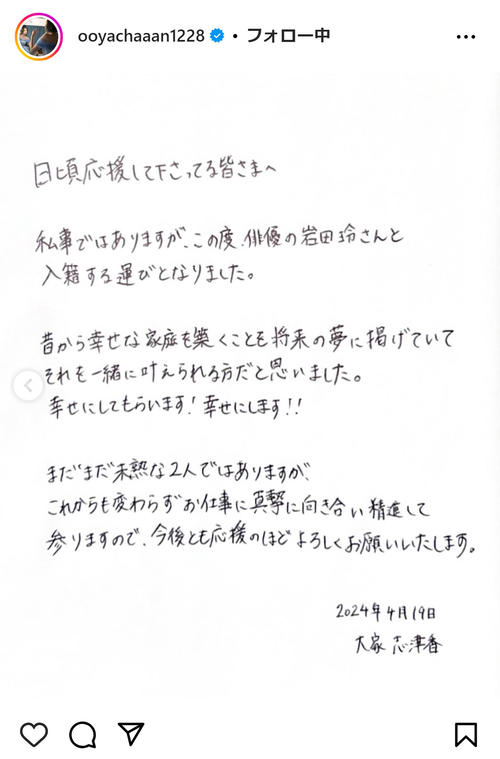 ooyachaaan1228 • フォロー中
日頃応援して下さってる皆さまへ
私事ではありますが、この度、俳優の岩田玲さんと
入籍する運びとなりました。
昔から幸せな家庭を築くことを将来の夢に掲げていて
それを一緒に叶えられる方だと思いました。
幸せにしてもらいます！幸せにします！！
まだまだ未熟な2人ではありますが、
これからも変わらずお仕事に真摯に向き合い精進して
参りますので、今後とも応援のほどよろしくお願いいたします。
2024年4月19日
大家志津香